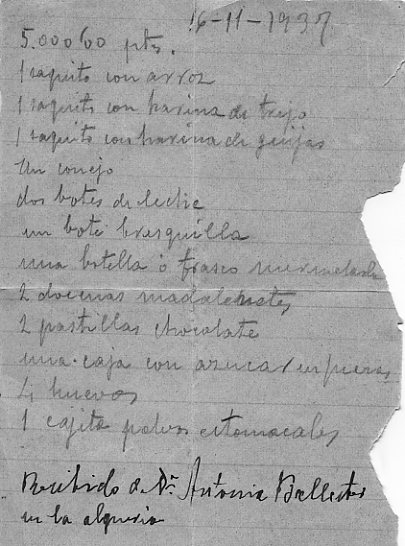 16-11-1937
5.000'00 pts.
1 saquito con arroz
1 saquito con harina de trigo
1 saquito con harina de guijas
un conejo
dos botes de leche
un bote bresquilla
una botella ó frasco mermelada
2 docenas madalenetes
2 pastillas chocolate
una caja con azucar
4 huevos
1 cajita polvos estomacales
Recibido de Dª Antonia Ballester
en la alqueria